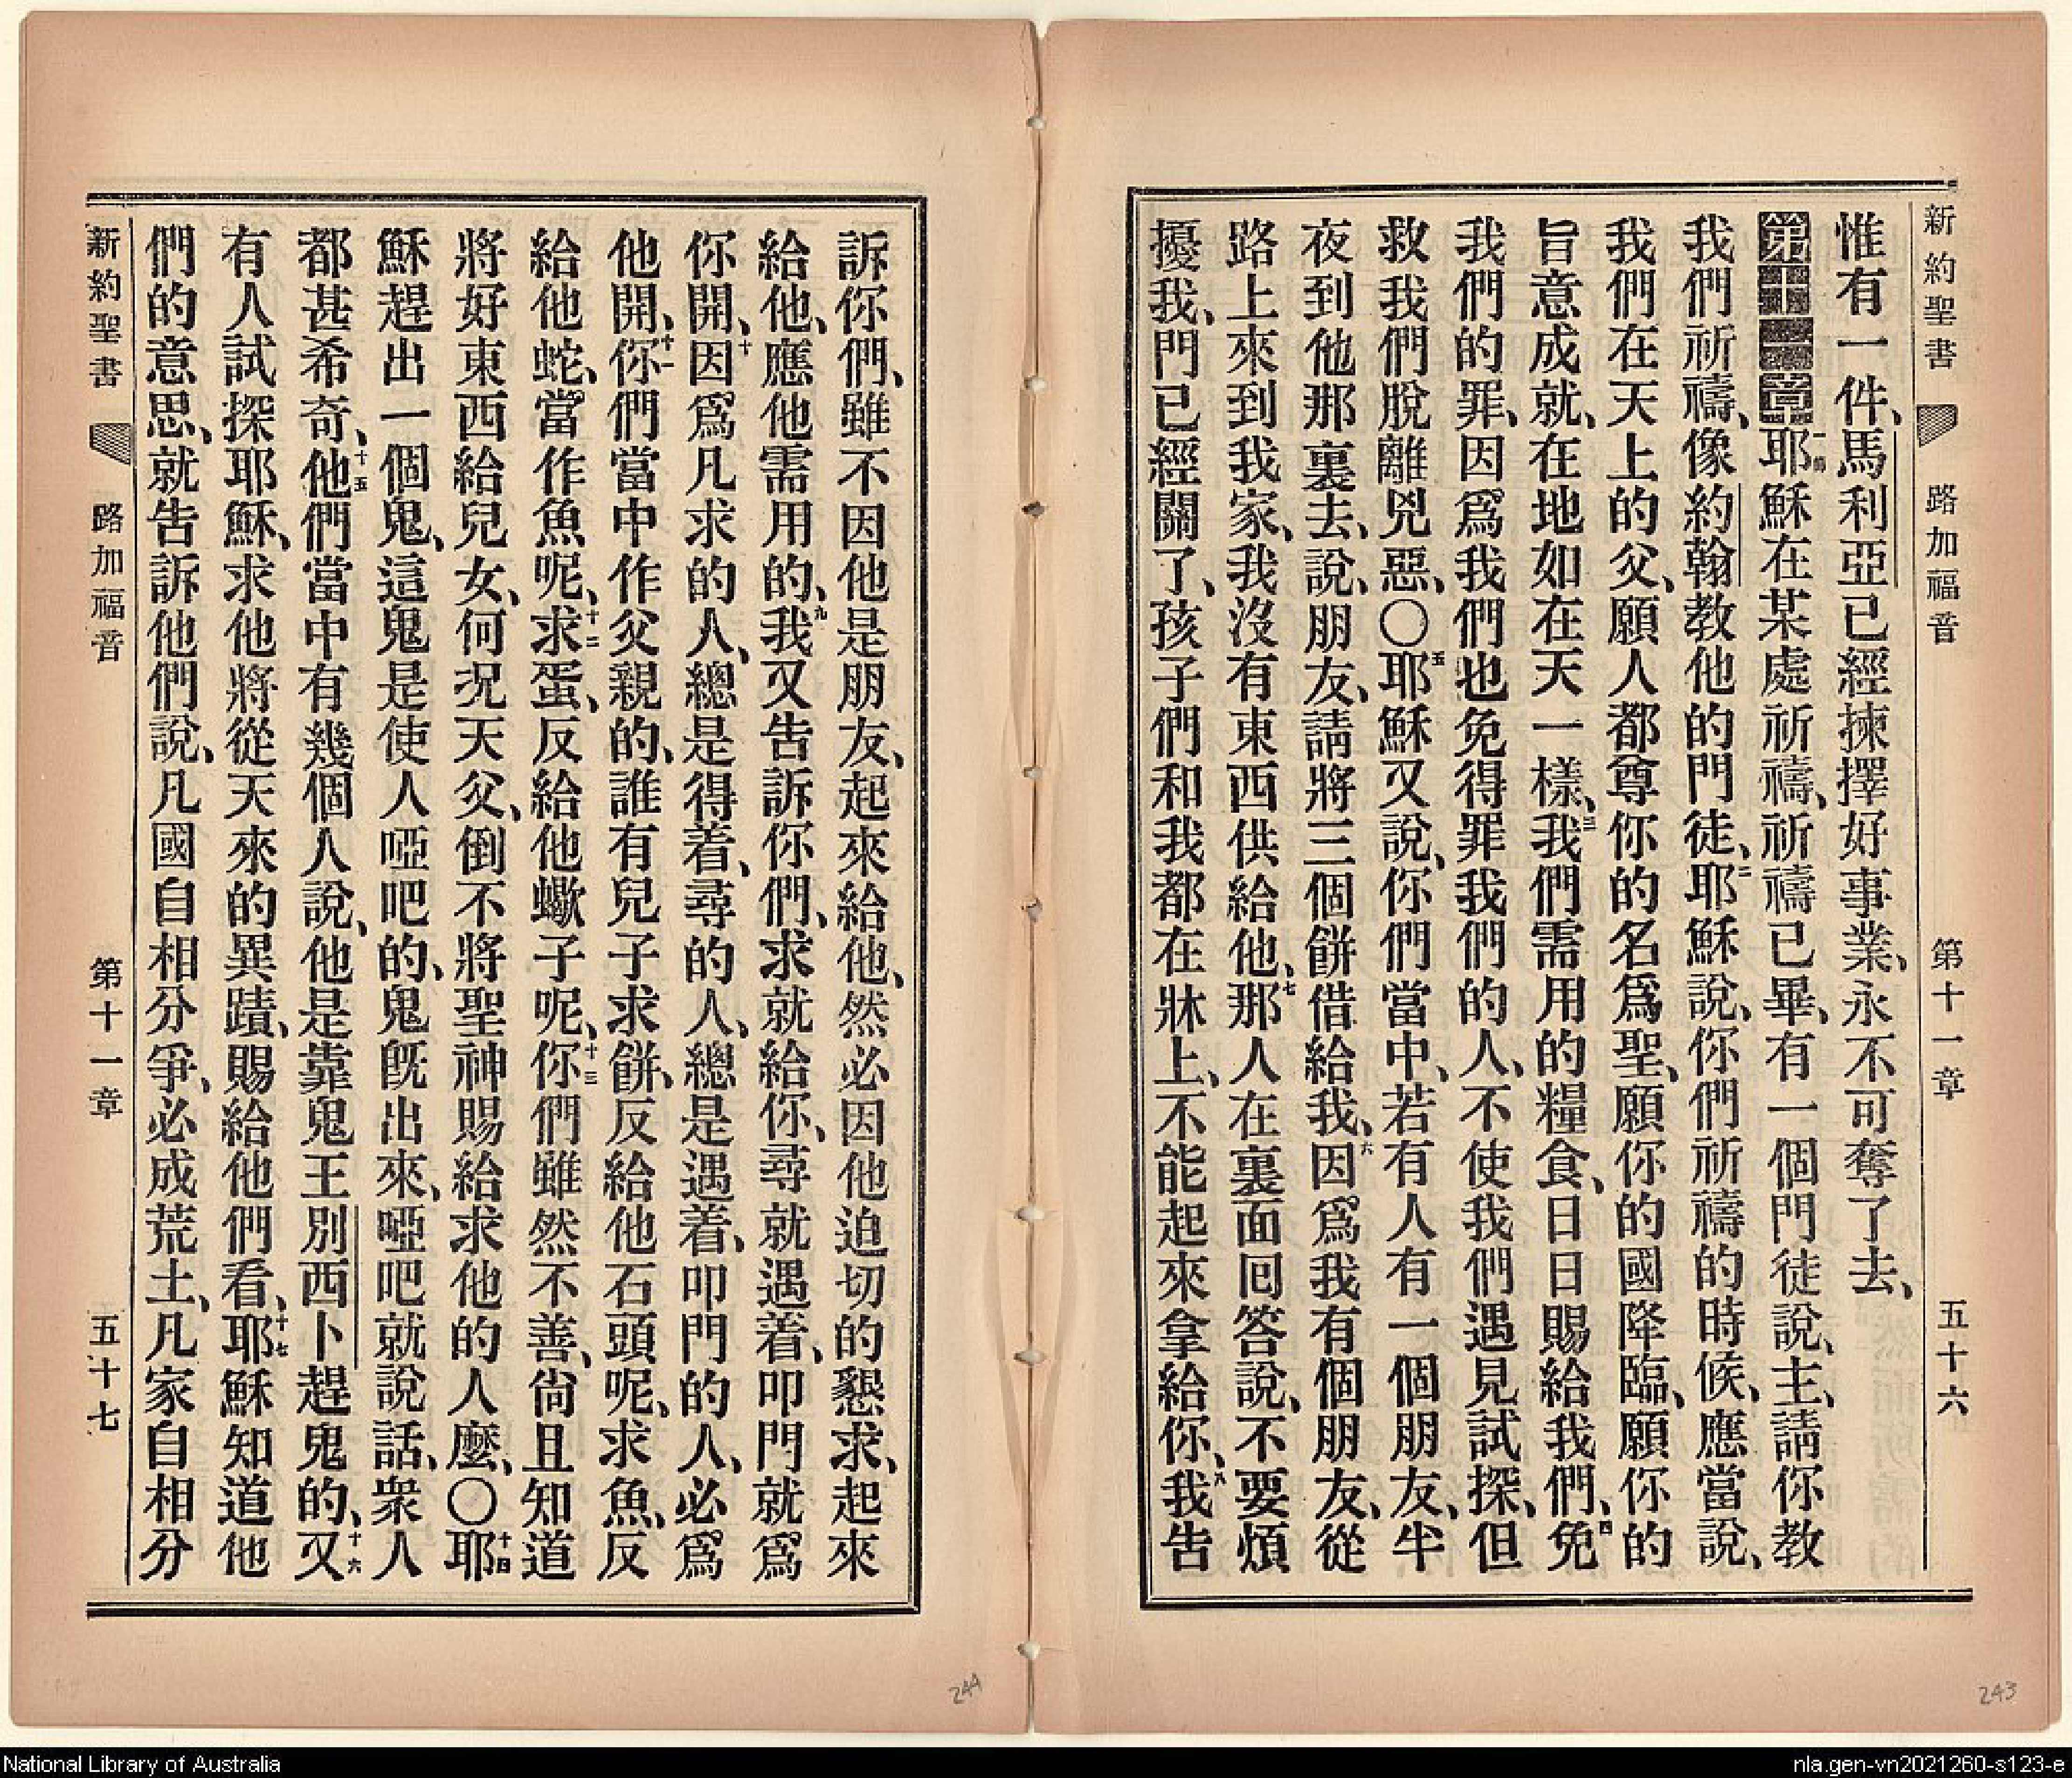 新約聖書 路加福音 第十一章 五十六
惟有一件、馬利亞已經揀擇好事業、永不可奪了去、
第十一章一節耶穌在某處祈禱、祈禱已畢、有一個門徒說、主、請你教
我們祈禱、像約翰教他的門徒、二耶穌說、你們祈禱的時候、應當說、
我們在天上的父、願人都尊你的名爲聖、願你的國降臨、願你的
旨意成就、在地如在天一樣、三我們需用的糧食、日日賜給我們、四免
我們的罪、因爲我們也免得罪我們的人、不使我們遇見試探、但
救我們脫離兇惡、〇五耶穌又說、你們當中、若有人有一個朋友、半
夜到他那裏去、說、朋友、請將三個餅借給我、六因爲我有個朋友、從
路上來到我家、我沒有東西供給他、七那人在裏面回答說、不要煩
擾我、門已經關了、孩子們和我都在牀上、不能起來拿給你、八我告
訴你們、雖不因他是朋友、起來給他、然必因他迫切的懇求、起來
給他、應他需用的、九我又告訴你們、求就給你、尋就遇着、叩門就爲
你開、十因爲凡求的人、總是得着、尋的人、總是遇着、叩門的人、必爲
他開、十一你們當中作父親的、誰有兒子求餅、反給他石頭呢、求魚、反
給他蛇、當作魚呢、十二求蛋、反給他蠍子呢、十三你們雖然不善、尙且知道
將好東西給兒女、何況天父、倒不將聖神賜給求他的人麼、〇十四耶
穌趕出一個鬼、這鬼是使人啞吧的、鬼旣出來、啞吧就說話、衆人
都甚希奇、十五他們當中有幾個人說、他是靠鬼王別西卜趕鬼的、十六又
有人試探耶穌、求他將從天來的異蹟、賜給他們看、十七耶穌知道他
們的意思、就告訴他們說、凡國自相分爭、必成荒土、凡家自相分
新約聖書 路加福音 第十一章 五十七
244
243
National Library of Australia
nla.gen-vn2021260-s123-e